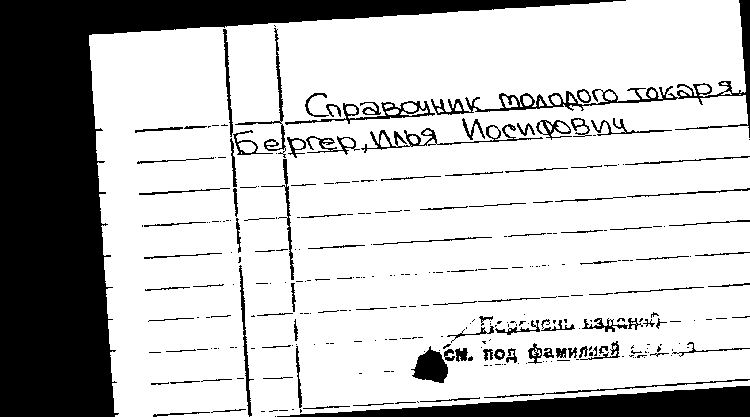 Справочник молодого токаря.
Бергер, Илья Иосифович
Перечень изданий
см. под фамилией